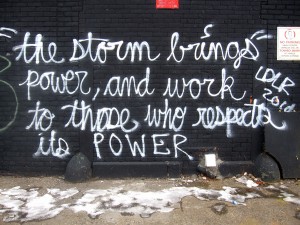 "the storm brings"
power, and work
to those who respects
its POWER
LDLR
2010